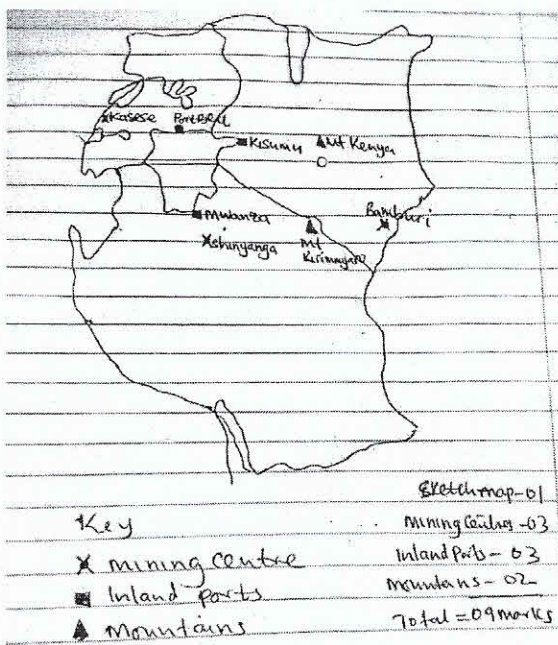 Kasese
Port Bell
Kisumu
Mt Kenya
Bamburi
Mwanza
Shinyanga
Mt
Sketch map-01
Key
Mining Centres -03
X mining centre
Inland Ports - 03
Inland ports
Mountains - 02
Mountains
Total = 09 marks